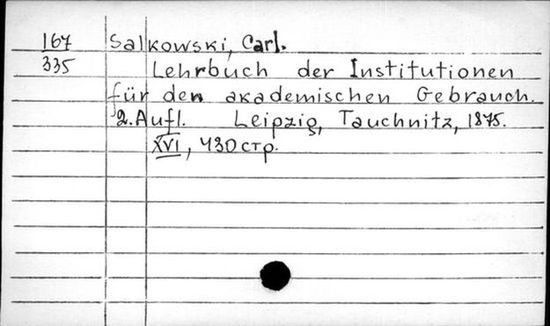 167 Salkowski, Carl.
335 Lehrbuch der Institutionen
für den akademischen Gebrauch.
2. Aufl. Leipzig, Tauchnitz, 1875.
XVI, 430 стр.